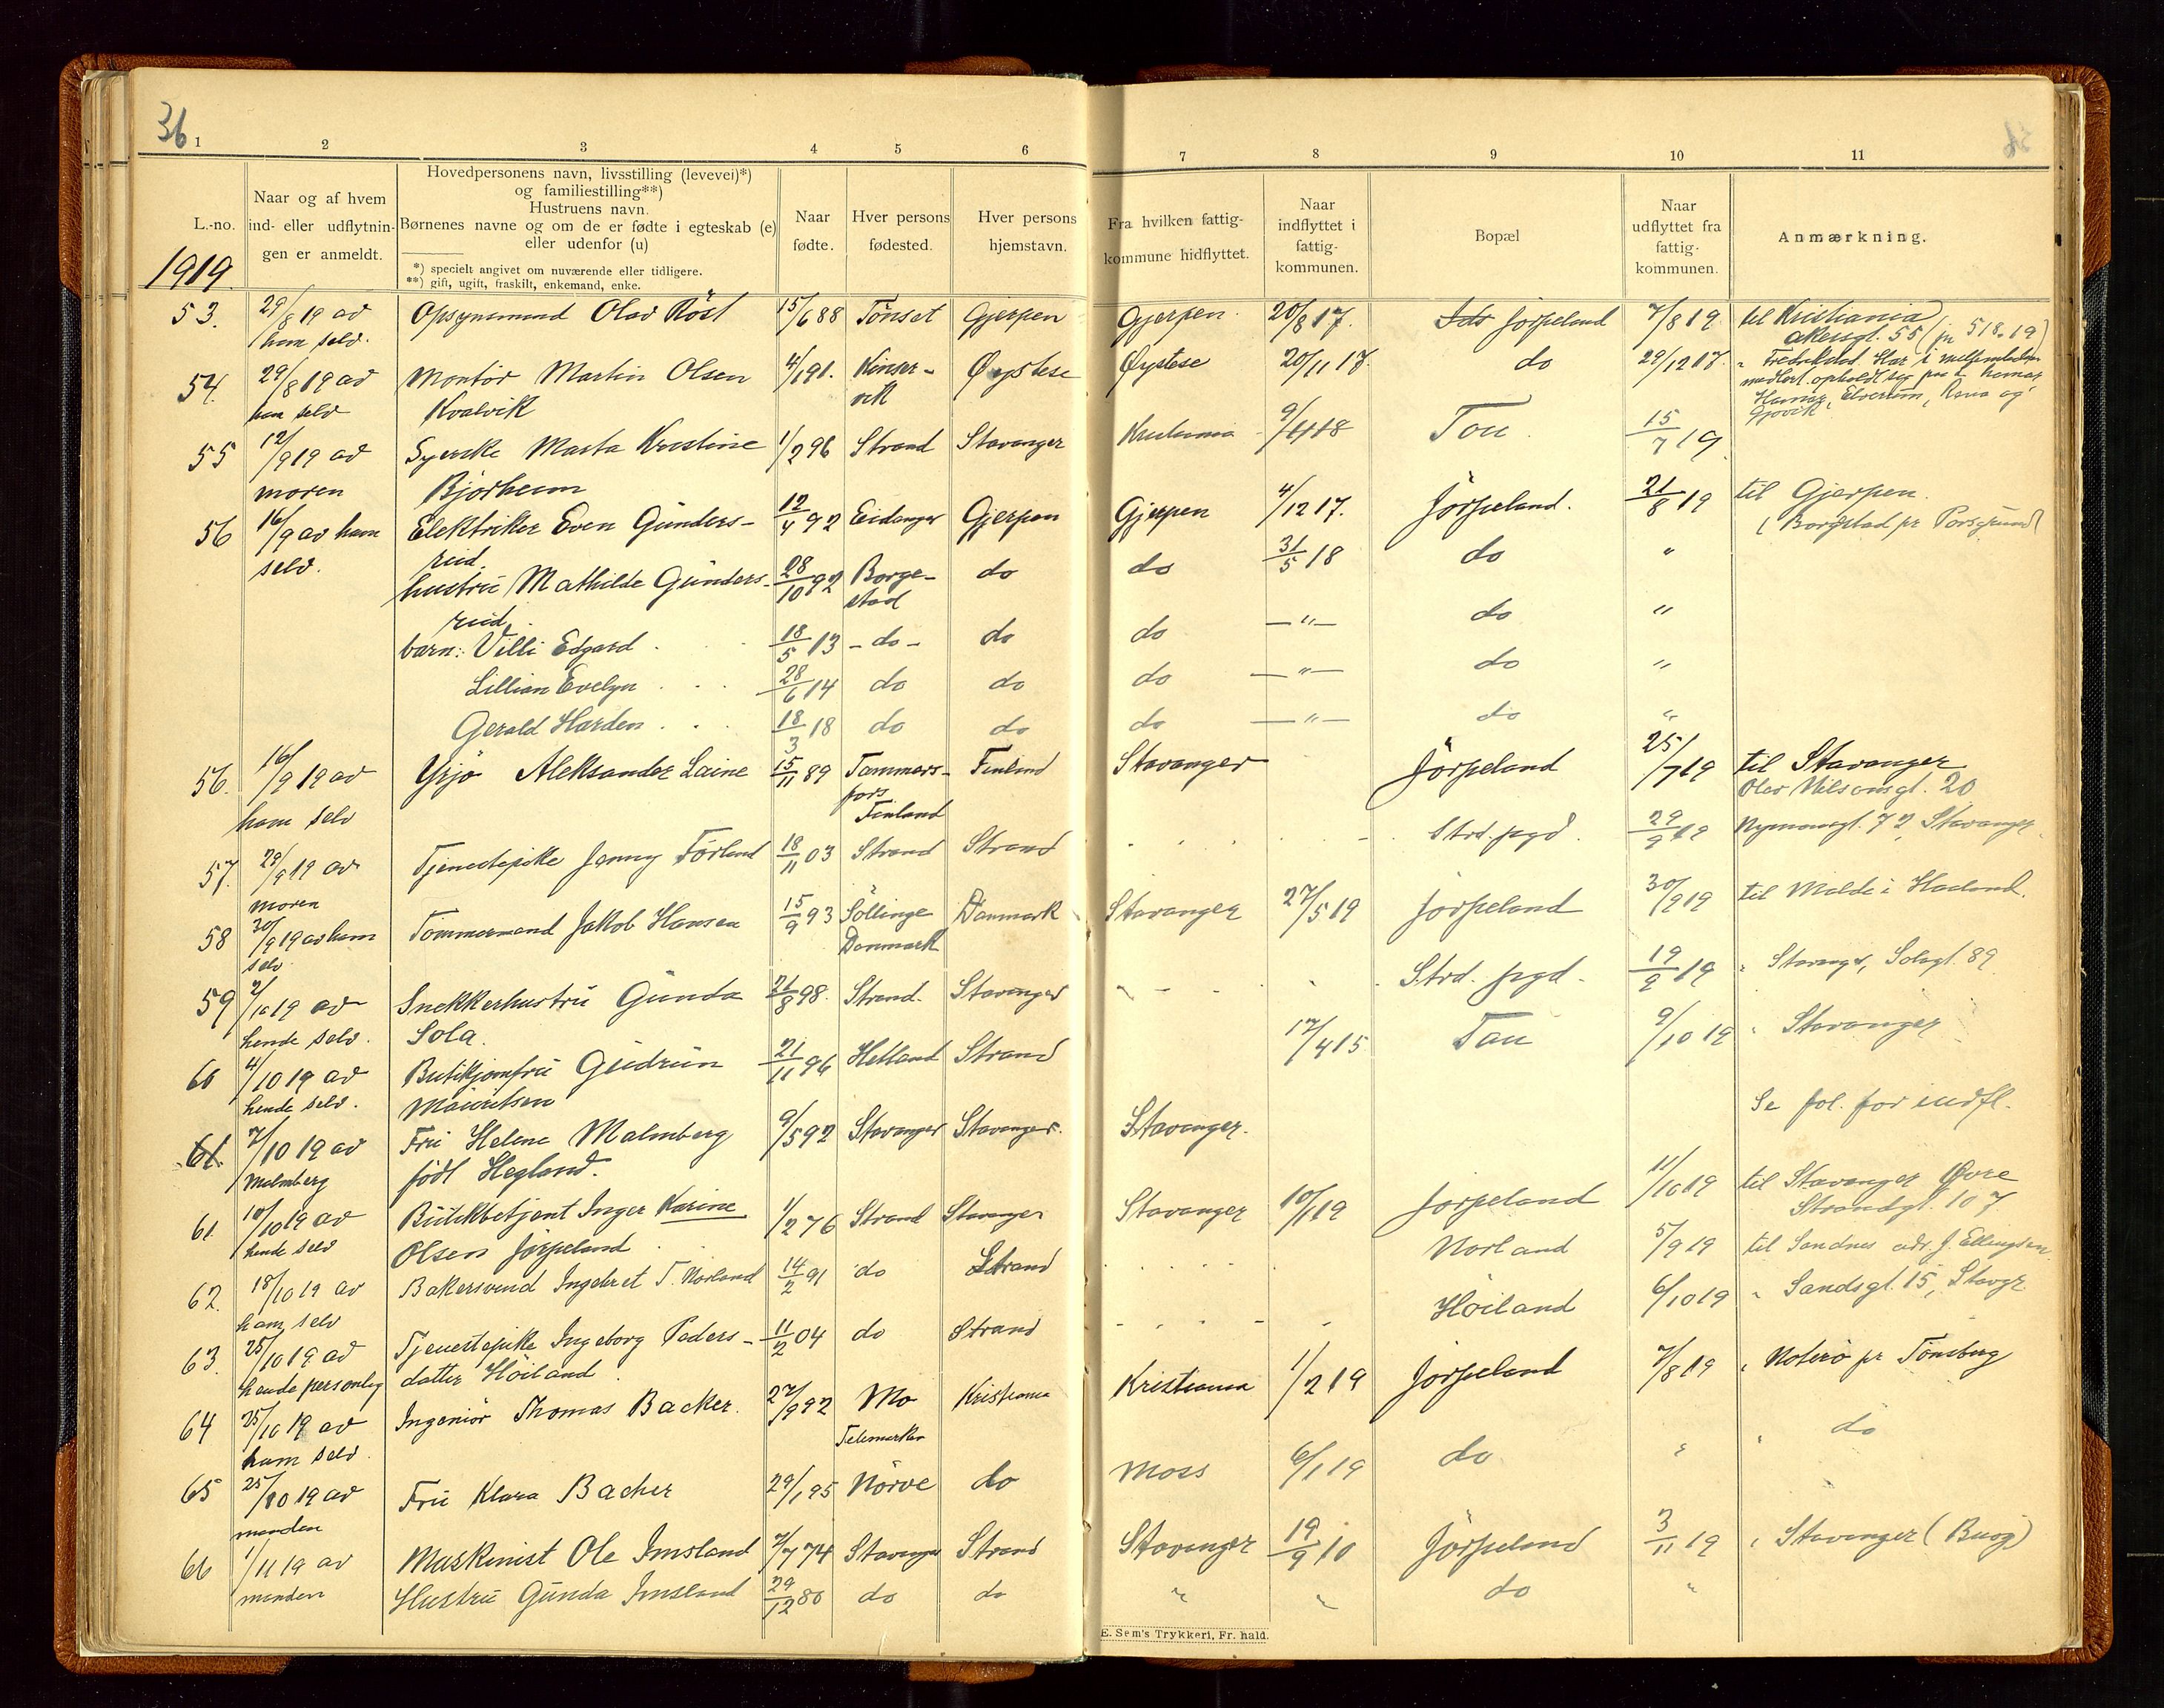 36
1 2 3 4 5 6 7 8 9 10 11
L.-no.
Naar og af hvem
ind- eller udflytnin-
gen er anmeldt.
Hovedpersonens navn, livsstilling (levevei)*)
og familiestilling**)
Hustruens navn.
Børnenes navne og om de er fødte i egteskab (e)
eller udenfor (u)
*) specielt angivet om nuværende eller tidligere.
**) gift, ugift, fraskilt, enkemand, enke.
Naar
fødte.
Hver persons
fødested.
Hver persons
hjemstavn.
Fra hvilken fattig-
kommune hidflyttet.
Naar
indflyttet i
fattig-
kommunen.
Bopæl
Naar
udflyttet fra
fattig-
kommunen.
Anmærkning.
1919.
53. 29/8 19 av Opsynsmand Olav Röst 15/6 88 Tönset Gjerpen Gjerpen 20/8 17. Jörpeland 7/8 19 til Kristiania
ham selv. Akersgt. 55 (jn 518-19)
54. 29/8 19 av Montör Martin Olsen 4/1 91. Kinser- Øystese Øystese 20/11 17. do 29/12 17. " Fredrikstad. Har i mellemtiden
ham selv Kvalvik vik opholdt sig paa
Hamar, Elverum, Rena og
Gjøvik
55 12/9 19 av Syerske Marta Kristine 1/2 96 Strand Stavanger Kristiania 9/4 18 Tou. 15/7 19
moren Bjørheim
56 16/9 av ham Elektriker Even Gunders- 12/4 92 Eidanger Gjerpen Gjerpen 4/12 17. Jörpeland. 21/8 19 til Gjerpen.
selv. rud (Borgestad pr Porsgrund)
hustru Mathilde Gunders- 28/10 92 Borge- do do 31/5 18 do "
rud. stad
barn: Villi Edgard 18/5 13 - do - do do — " — do "
Lillian Evelyn 28/6 14 do do do — " — do "
Gerald Harden 18/3 18 do do do — " — do "
56. 16/9 19 av Yrjö Aleksander Laine 15/11 89 Tammers- Finland Stavanger Jörpeland 25/7 19 til Stavanger
ham selv fors Olav Nilsensgt. 20
Finland
57. 29/9 19 av Tjenestepike Jenny Förland 18/11 03 Strand Strand Strd. pgd. 29/9 19 Nymansgt. 72, Stavanger
moren
58 30/9 19 av ham Tömmermand Jakob Hansen 15/9 93 Söllinge Danmark Stavanger 27/5 19 Jörpeland 30/9 19 til Malde i Haaland.
selv Danmark
59 2/10 19 av Snekkerhustru Gunda 21/8 98. Strand. Stavanger Strd. pgd. 19/9 19 " Stavanger, Solagt. 89
hende selv. Sola.
60 4/10 19 av Butikjomfru Gudrun 21/11 96 Hetland Strand 17/4 15 Tau 9/10 19 " Stavanger
hende selv. Mauritsen
61. 7/10 19 av Fru Helene Malmberg 9/5 92 Stavanger Stavanger. Stavanger. Se fol. for indfl.
Malmberg födt Hegland.
61. 10/10 19 av Butikbetjent Inger Karine 1/2 76 Strand Stavanger Stavanger 10/1 19 Jörpeland 11/10 19 til Stavanger Øvre
hende selv Olsen Jörpeland Strandgt. 107
62. 18/10 19 av Bakersvend Ingebret T. Norland 14/2 91 do Strand Norland 5/9 19 til Sandnes adr. J. Ellingsen
ham selv
63. 25/10 19 av Tjenestepike Ingeborg Peders- 11/2 04 do Strand Höiland 6/10 19 " Sandsgt. 15, Stavgr
hende personlig datter Höiland
64 25/10 19 av Ingeniör Thomas Backer. 27/9 92 Mo Kristiania Kristiania 1/2 19 Jörpeland 7/8 19 " Noterö pr Tönsberg
ham selv. Telemarken
65 25/10 19 av Fru Klara Backer 29/1 95 Nörve do Moss 6/1 19 do " " do
manden
66 1/11 19 av Maskinist Ole Imsland 7/7 74 Stavanger Strand Stavanger 19/9 10 Jörpeland 3/11 19 " Stavanger (Buøy)
manden Hustru Gunda Imsland 29/12 80 do do " " do "
E. Sem's Trykkeri, Fr. hald.